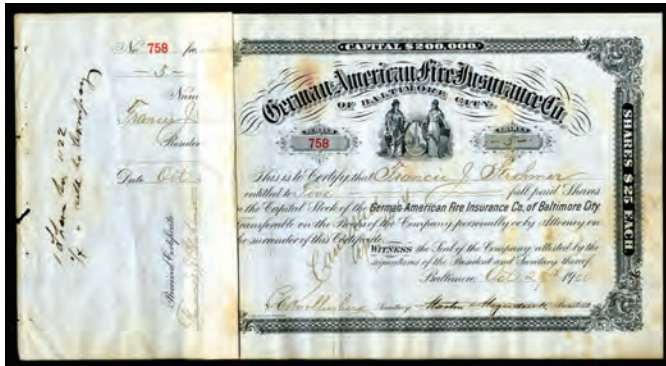 No. 758 for
— 5 —
Francis J.
Date Oct
Received Certificate
CAPITAL $200,000.
German American Fire Insurance Co.
OF BALTIMORE CITY.
NUMBER
758
SHARES
— 5 —
This is to Certify that Francis J.
entitled to Five full paid Shares
in the Capital Stock of the German American Fire Insurance Co. of Baltimore City
transferable on the Books of the Company personally or by Attorney on
the surrender of this Certificate.
WITNESS the Seal of the Company attested by the
signatures of the President and Secretary thereof.
Baltimore, Oct 1900
Secretary President
SHARES $25 EACH